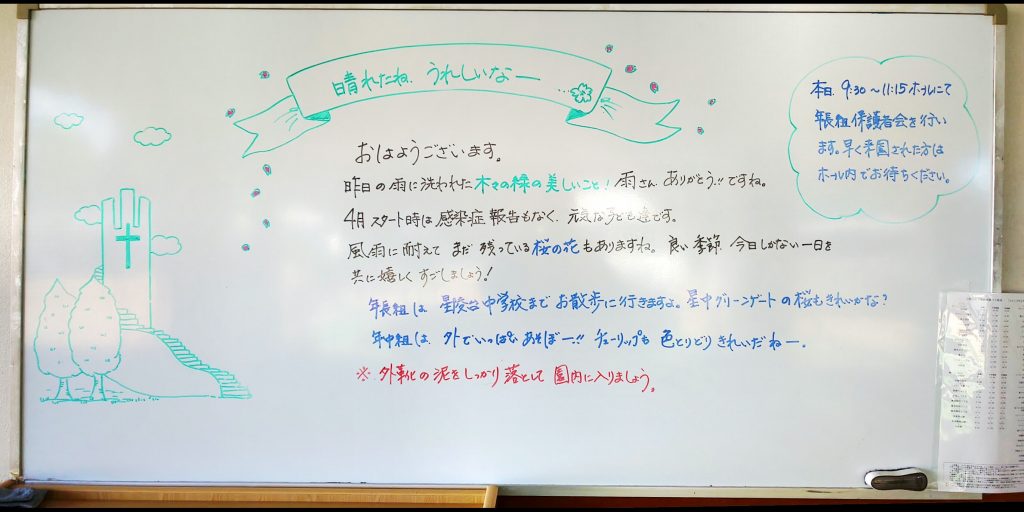 晴れたね、うれしいなー
本日、9:30～11:15ホールにて
年長組保護者会を行い
ます。早く来園された方は
ホール内でお待ちください。
おはようございます。
昨日の雨に洗われた木々の緑の美しいこと！雨さんありがとう!!ですね。
4月スタート時は感染症報告もなく、元気な子ども達です。
風雨に耐えてまだ残っている桜の花もありますね。良い季節 今日しかない一日を
共に嬉しくすごしましょう！
年長組は、星陵台中学校までお散歩に行きますよ。星中グリーンゲートの桜もきれいかな？
年中組は、外でいっぱいあそぼー!! チューリップも色とりどりきれいだねー。
※外靴の泥をしっかり落として園内に入りましょう。